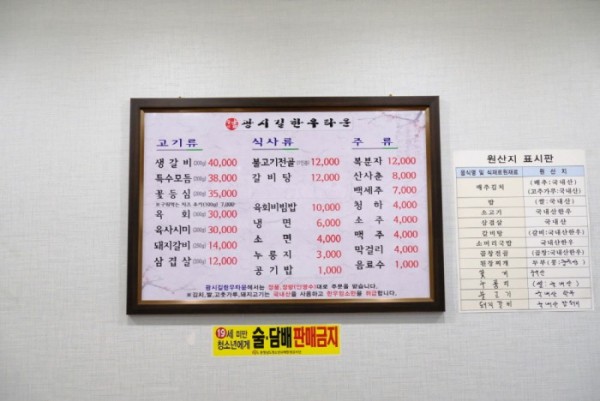 광시길한우타운
고기류
생갈비 (200g) 40,000
특수모듬 (200g) 38,000
꽃등심 (200g) 35,000
육회 (200g) 30,000
육사시미 (200g) 30,000
돼지갈비 (200g) 14,000
삼겹살 (200g) 12,000
식사류
불고기전골 12,000
갈비탕 12,000
육회비빔밥 10,000
냉면 6,000
소면 4,000
누룽지 3,000
공기밥 1,000
주류
복분자 12,000
산사춘 8,000
백세주 7,000
청하 4,000
소주 4,000
맥주 4,000
막걸리 4,000
음료수 1,000
광시길한우타운에서는
주문을 받습니다.
※김치,쌀,고춧가루,돼지고기는 국내산을 사용하고 한우암소만을 취급합니다.
원산지 표시판
음식명 및 식재료원재료 원산지
배추김치 (배추:국내산)
(고추가루:국내산)
밥 (쌀:국내산)
소고기 국내산한우
삼겹살 국내산
갈비탕 (갈비:국내산한우)
소머리국밥 국내산한우
곱창전골 (곱창:국내산한우)
된장찌개
19세 미만
청소년에게
술·담배 판매금지